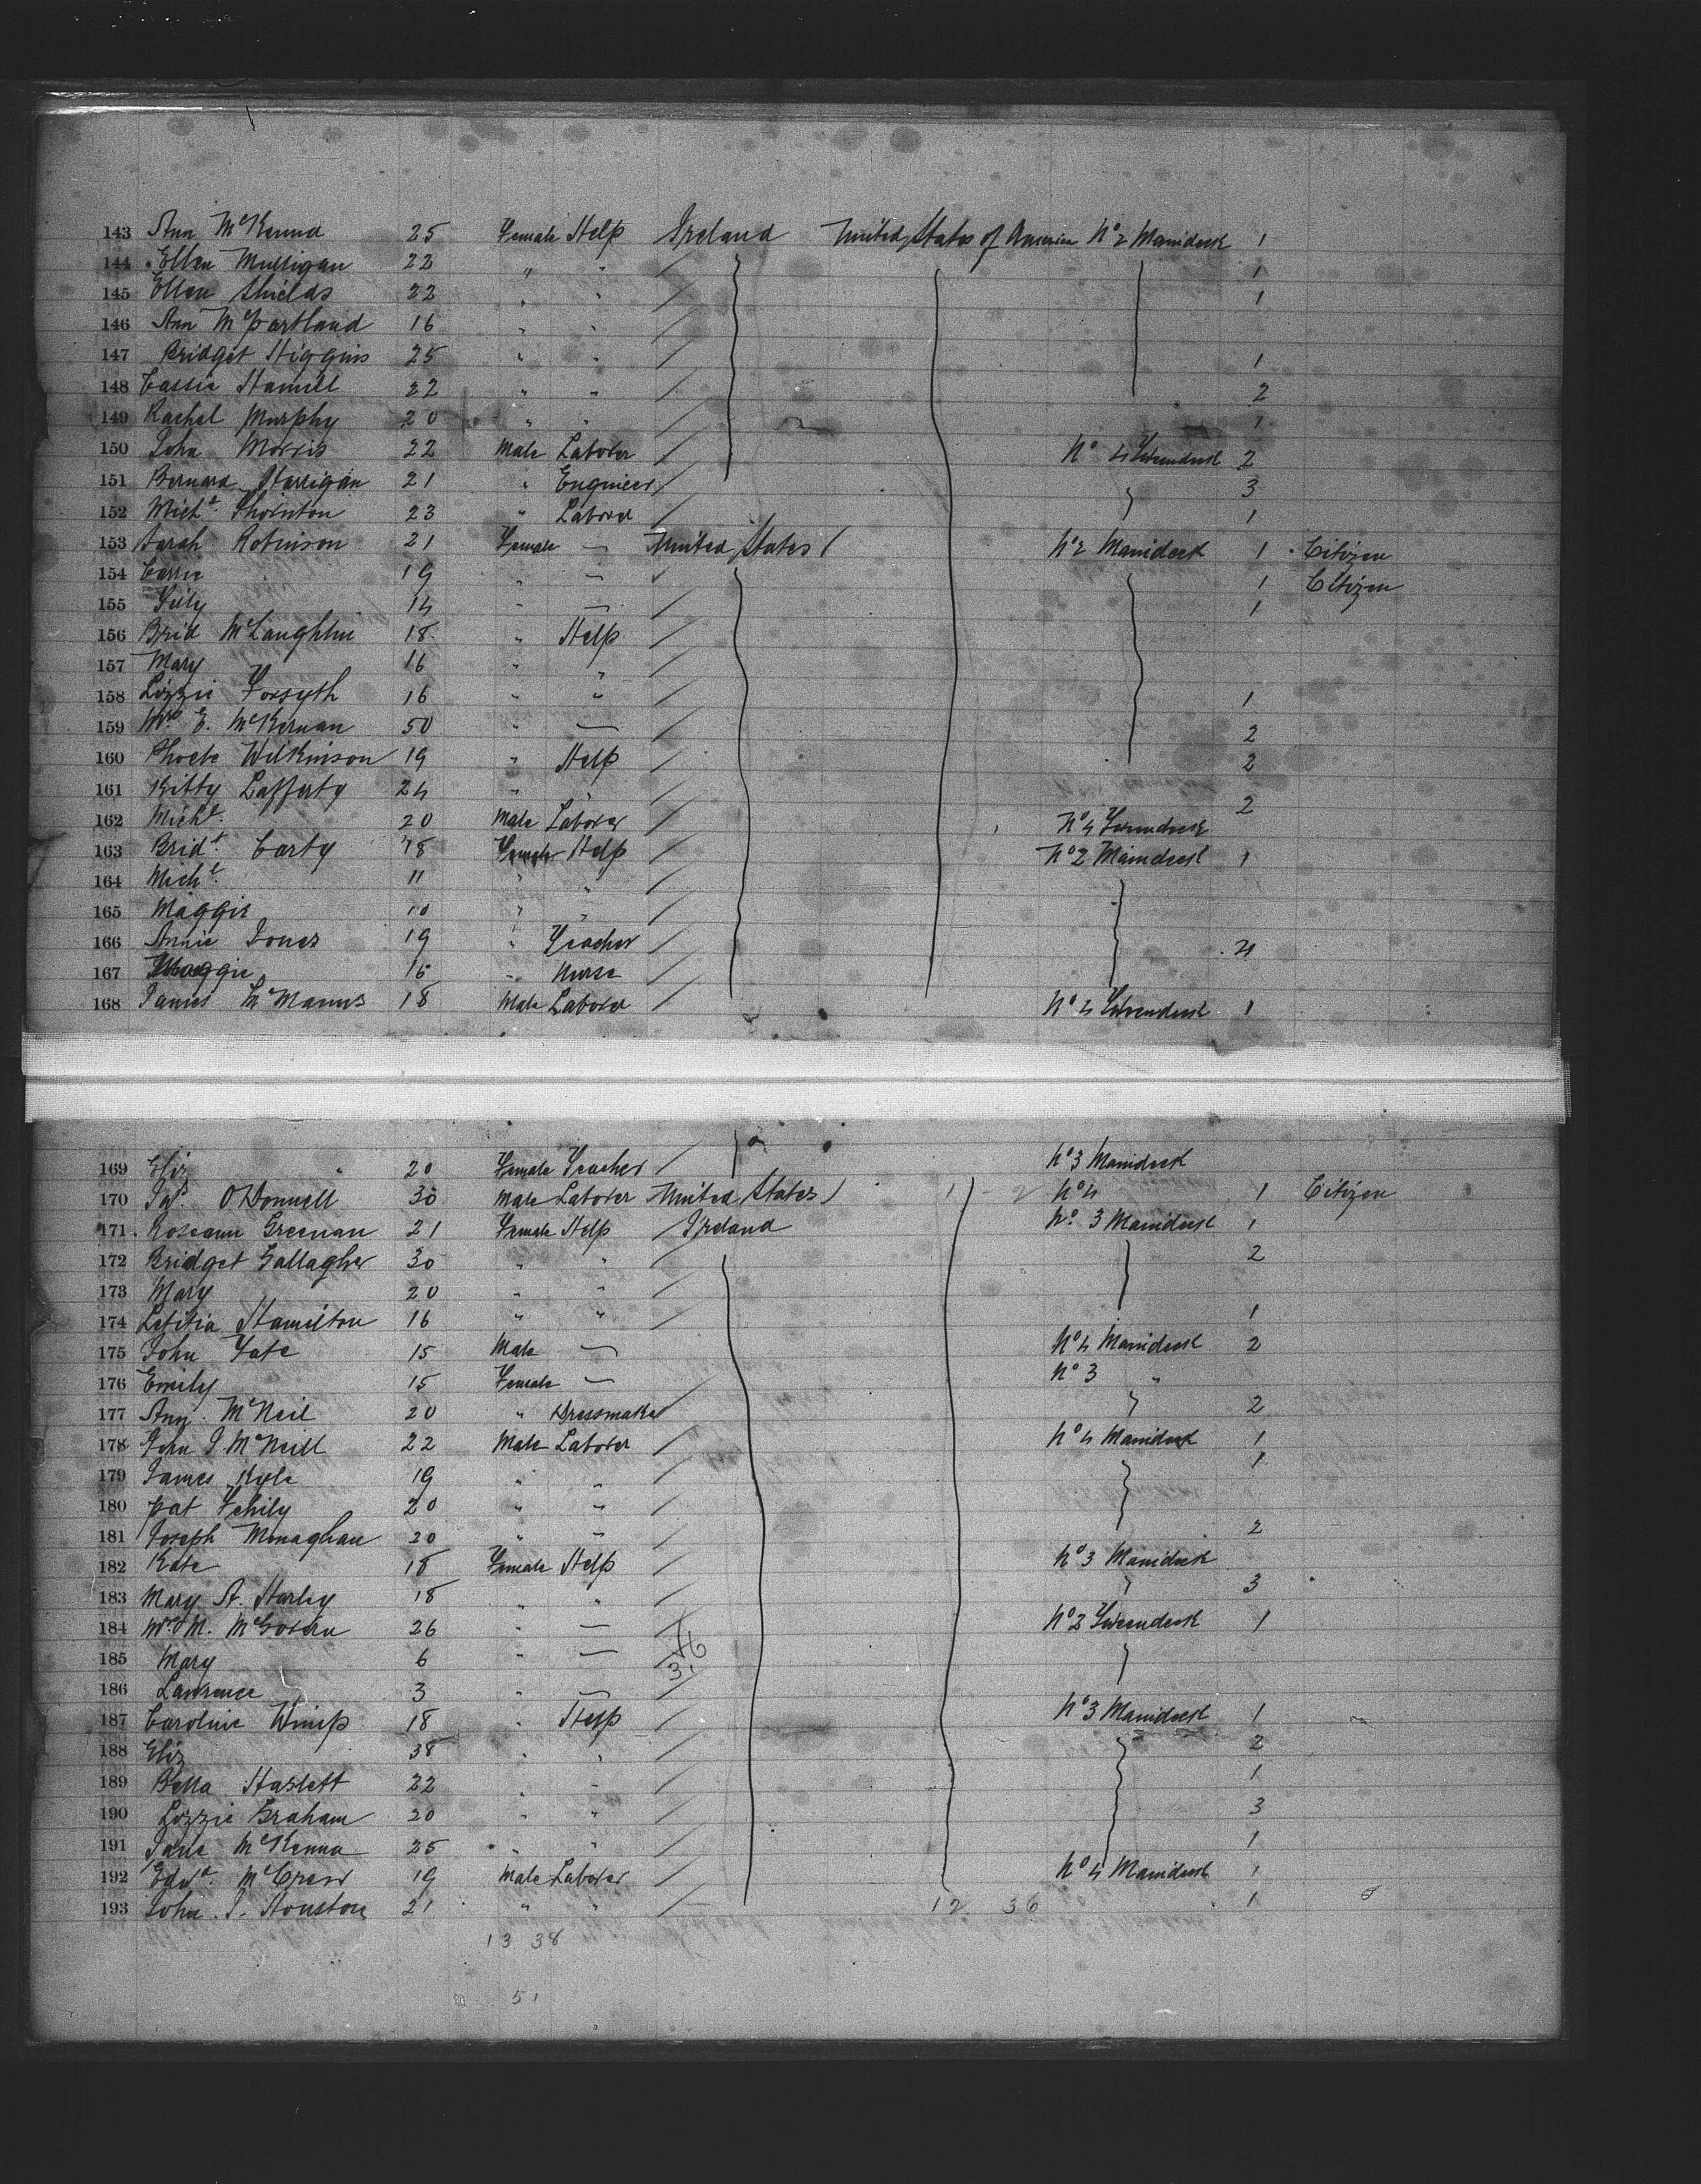 143 Ann McKenna 25 Female Help Ireland United States of America No 2 Maindeck 1
144 Ellen Mulligan 22 " " / 1
145 Ellen Shields 22 " " / 1
146 Ann McPartland 16 " " /
147 Bridget Higgins 25 " " / 1
148 Cassie Hamill 22 " " / 2
149 Rachel Murphy 20 " " / 1
150 John Morris 22 Male Laborer / No 4 Tweendeck 2
151 Bernard Harrigan 21 " Engineer / 3
152 Michl. Thornton 23 " Laborer / 1
153 Sarah Robinson 21 Female — United States / No 2 Maindeck 1 Citizen
154 Carrie 19 " — / 1 Citizen
155 Lily 14 " — / 1
156 Brid McLaughlin 18 " Help /
157 Mary 16 " "
158 Lizzie Forsyth 16 " " / 1
159 Mrs E. McKernan 50 " — / 2
160 Phoebe Wilkinson 19 " Help / 2
161 Kitty Lafferty 24 " " / 2
162 Michl. 20 Male Laborer / No 4 Tweendeck
163 Bridt. Carty 48 Female Help / No 2 Maindeck 1
164 Michl. 11 " " /
165 Maggie 10 " " /
166 Annie Jones 19 " Teacher / 4
167 Maggie 16 " Nurse /
168 James McManus 18 Male Laborer / No 4 Tweendeck 1
169 Eliz " 20 Female Teacher / No 3 Maindeck
170 Jas. O'Donnell 30 Male Laborer United States / No 4 1 Citizen
171 Roseann Greenan 21 Female Help / Ireland No. 3 Maindeck 1
172 Bridget Gallagher 30 " " / 2
173 Mary 20 " " /
174 Letitia Hamilton 16 " " / 1
175 John Tate 15 Male — No 4 Maindeck 2
176 Emily 15 Female — / No 3 "
177 Ann McNeil 20 " Dressmaker / 2
178 John J McNeill 22 Male Laborer / No 4 Maindeck 1
179 James Kyle 19 " " / 1
180 Pat Fehily 20 " " /
181 Joseph Monaghan 20 " " / 2
182 Kate 18 Female Help / No 3 Maindeck
183 Mary A. Harley 18 " " / 3
184 Mrs M. McGovern 26 " — / No 2 Tweendeck 1
185 Mary 6 " — /
186 Lawrence 3 " — /
187 Caroline Wimp 18 " Help / No 3 Maindeck 1
188 Eliz 38 " " / 2
189 Bella Haslett 22 " " / 1
190 Lizzie Graham 20 " " / 3
191 Jane McKenna 25 " " / 1
192 Edwd. McCrear 19 Male Laborer / No 4 Maindeck 1
193 John J. Houston 21 " " / 12 36 1
13 38
51